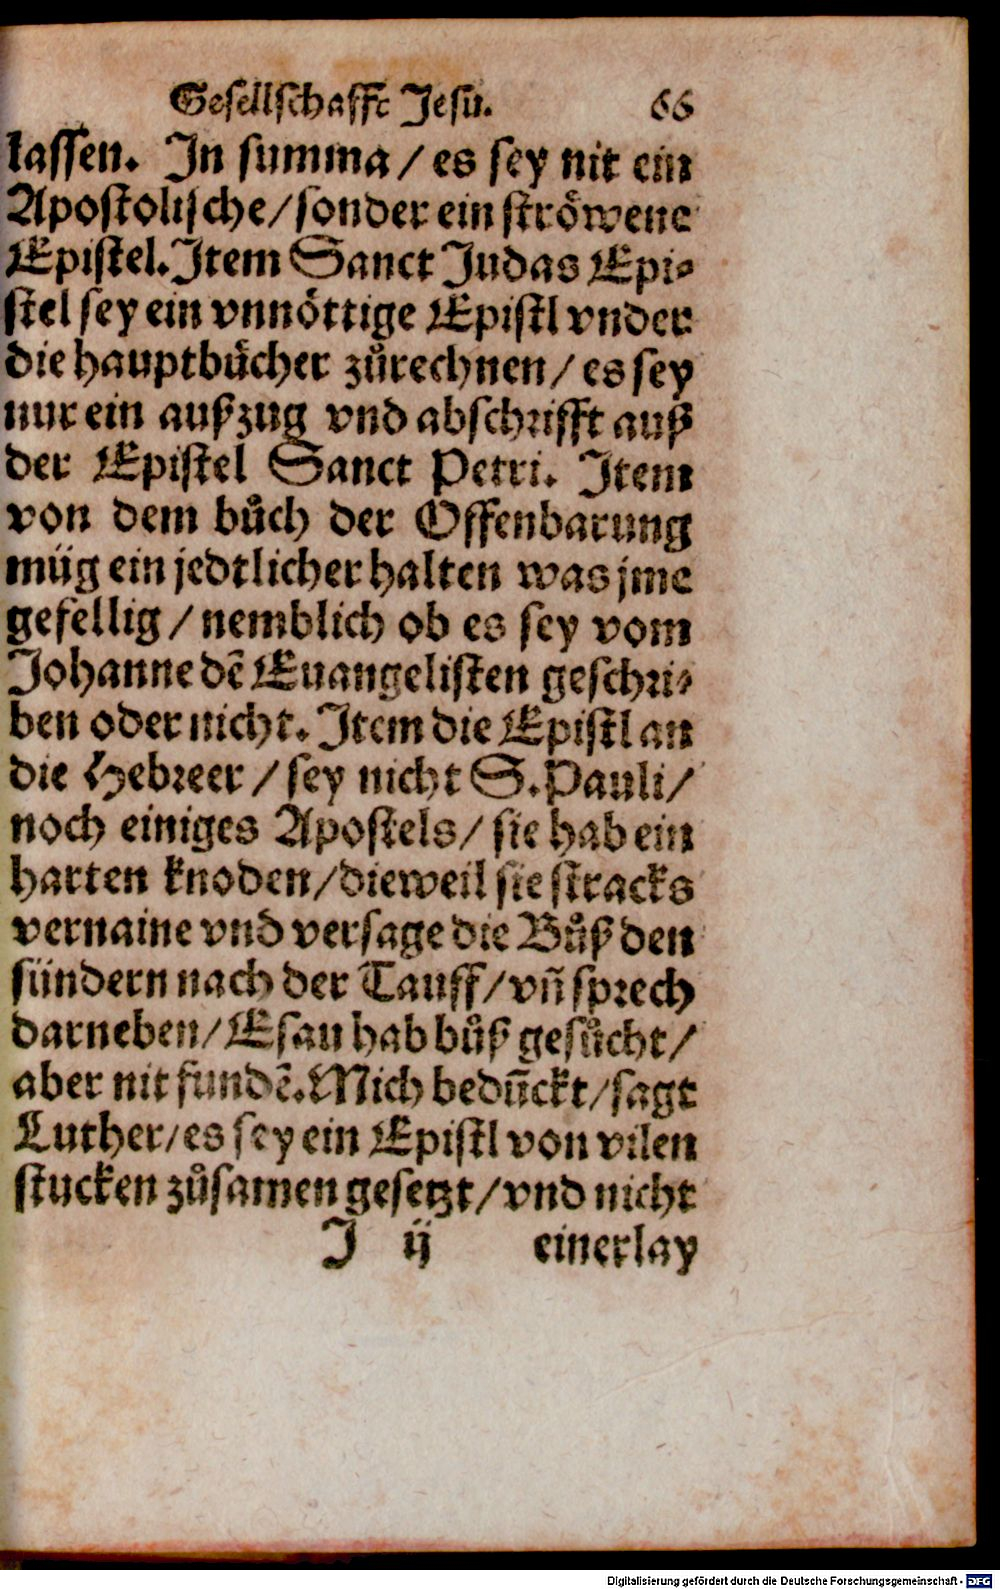 Gesellschafft Jesu. 66
lassen. In summa / es sey nit ein
Apostolische / sonder ein ströwene
Epistel. Item Sanct Judas Epi⸗
stel sey ein vnnöttige Epistl vnder
die hauptbücher zůrechnen / es sey
nur ein außzug vnd abschrifft auß
der Epistel Sanct Petri. Item
von dem bůch der Offenbarung
müg ein jedtlicher halten was jme
gefellig / nemblich ob es sey vom
Johanne dẽ Euangelisten geschri⸗
ben oder nicht. Item die Epistl an
die Hebreer / sey nicht S. Pauli /
noch einiges Apostels / sie hab ein
harten knoden / dieweil sie stracks
vernaine vnd versage die Bůß den
sündern nach der Tauff / vñ sprech
darneben / Esau hab bůß gesůcht /
aber nit fundẽ. Mich beduñckt / sagt
Luther / es sey ein Epistl von vilen
stucken zůsamen gesetzt / vnd nicht
J ij einerlay
Digitalisierung gefördert durch die Deutsche Forschungsgemeinschaft - DFG